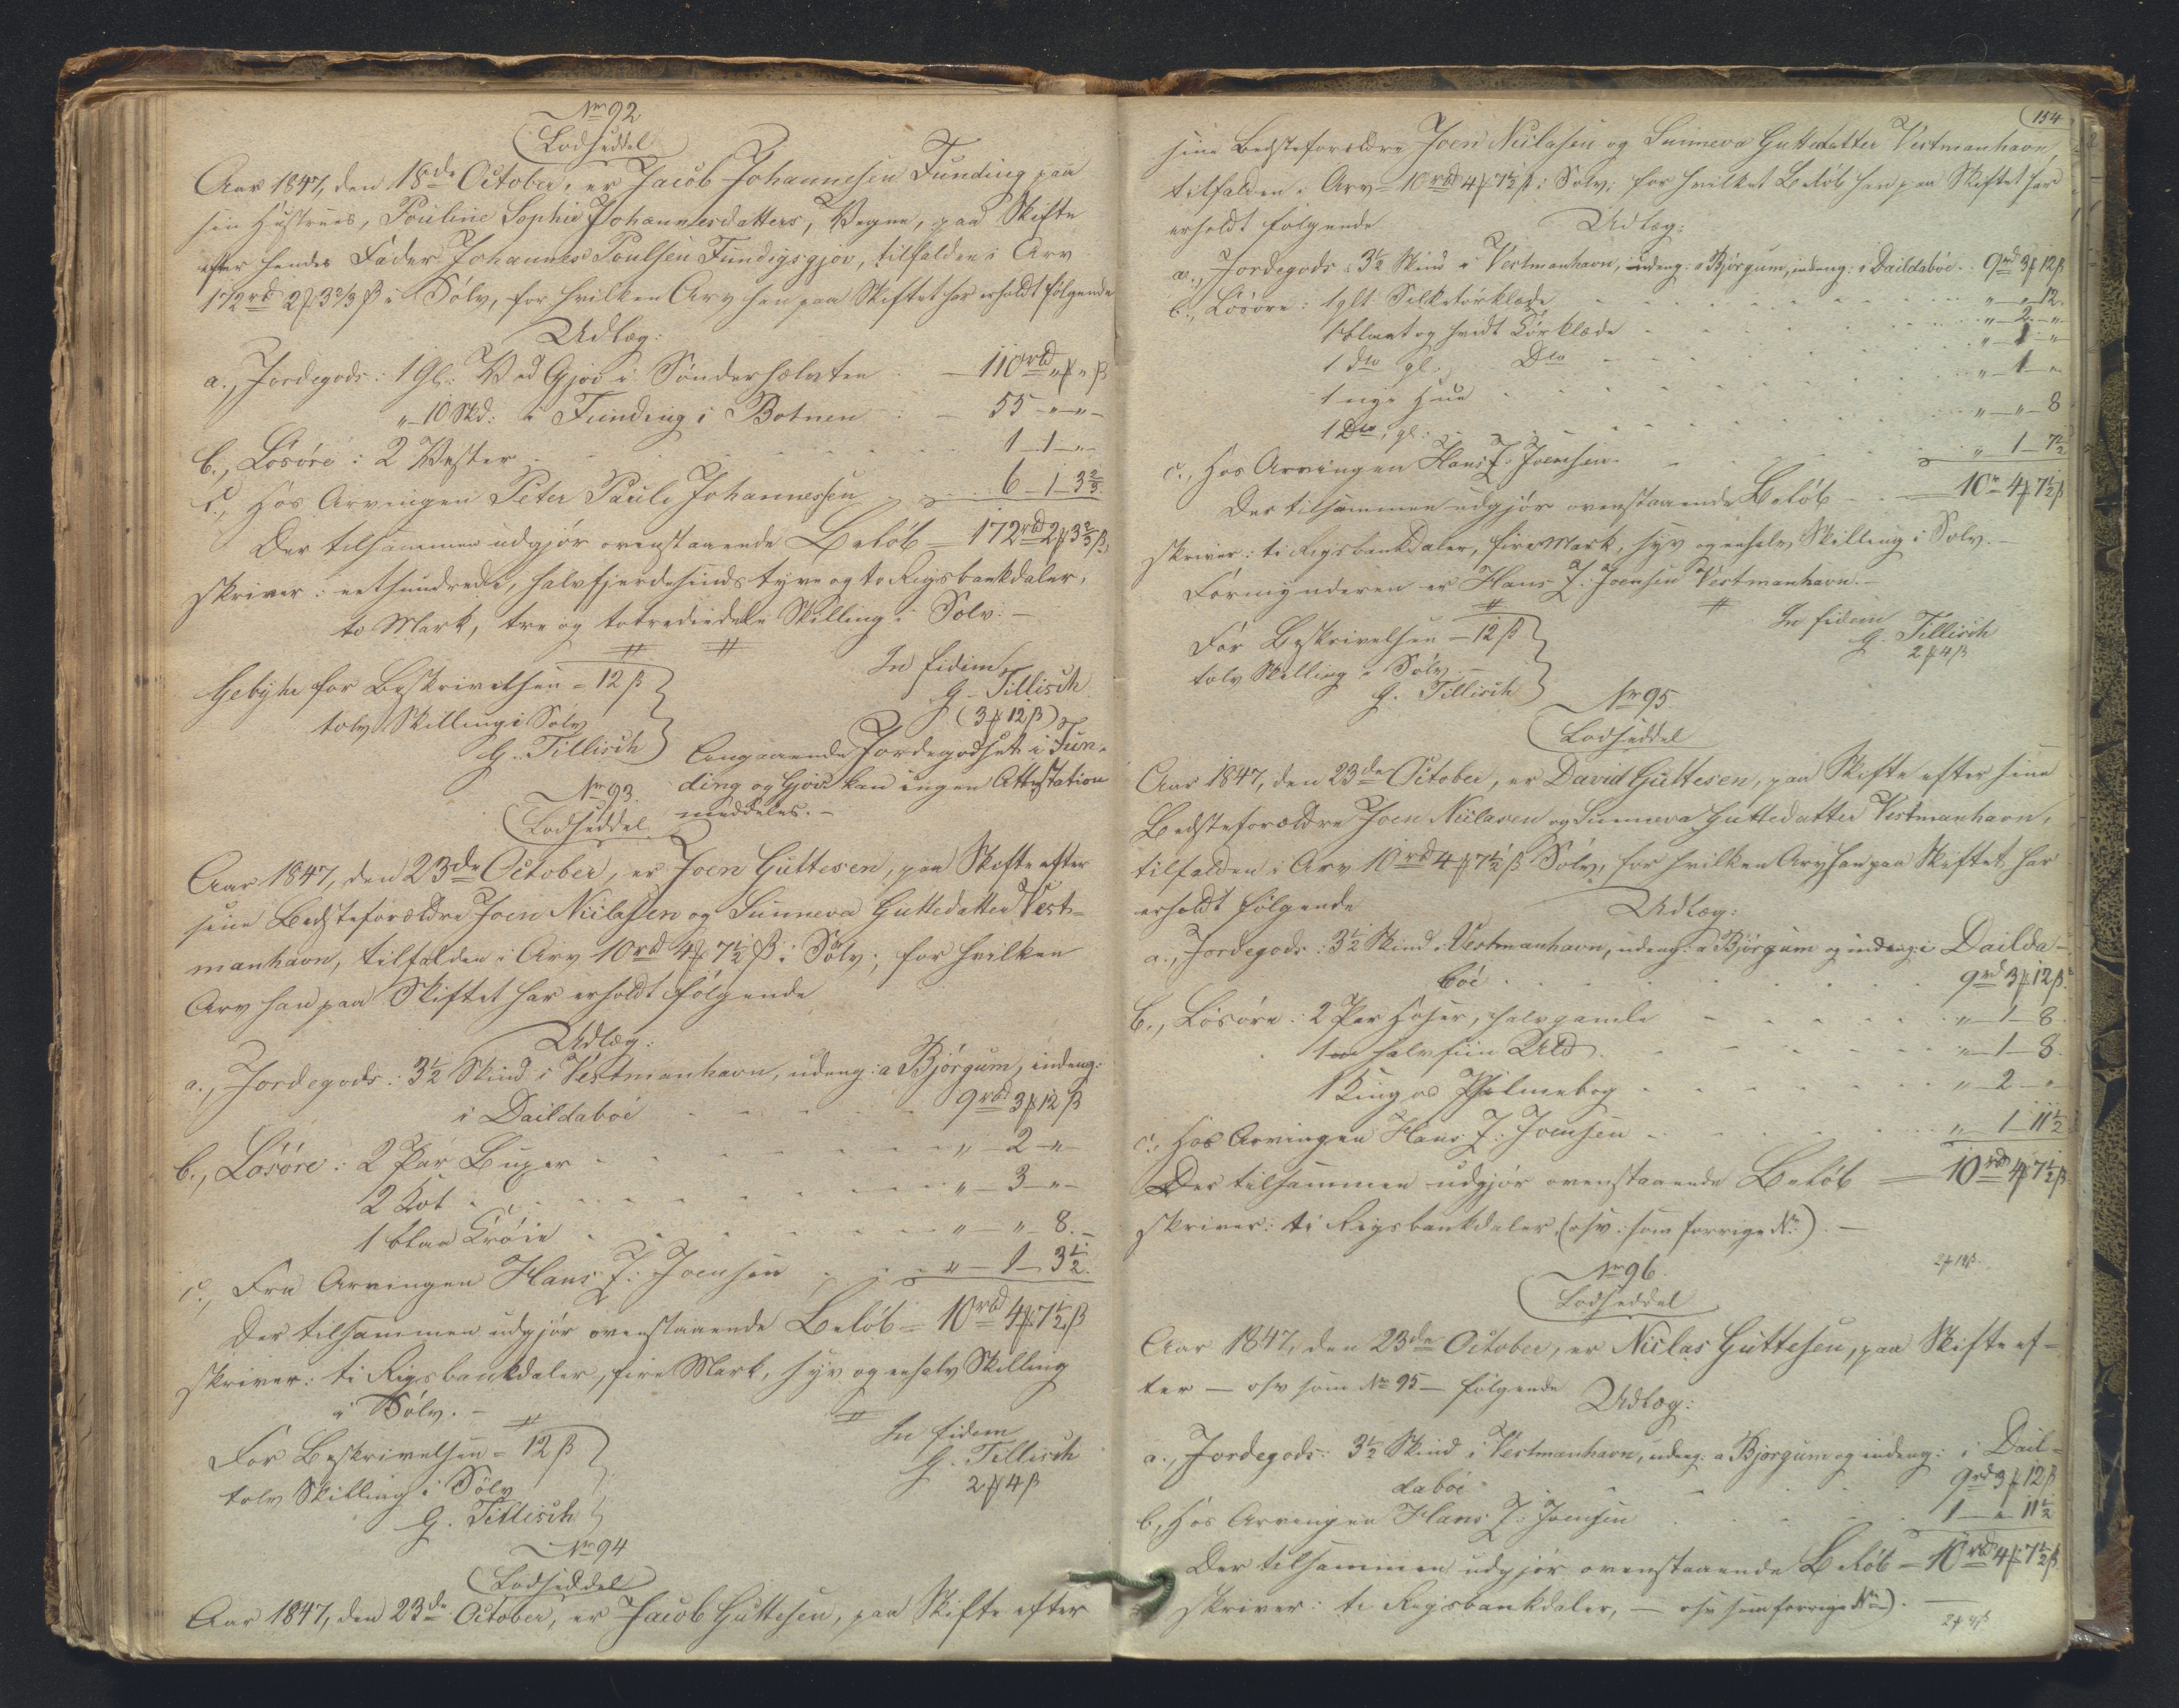 No 92
Lodseddel
Aar 1847, den 18de October, er Jacob Johannesen Funding paa
sin Hustrues, Pouline Sophie Johannesdatters, Vegne, paa Skifte
efter hendes Fader Johannes Poulsen Fundigsgjov, tilfalden i Arv
172rbd 2# 3 2/3 ß i Sølv, for hvilken Arv han paa Skiftet har erholdt følgende
Udlæg:
a., Jordegods: 1 Gl: Ved Gjov i Sønderhælvten - 110rbd „# „ß
„-10 Skd: i Funding i Botnen - 55 - „ - „ -
b., Løsøre: 2 Vester 1 - 1 - „ -
c., Hos Arvingen Peter Paule Johannessen 6 - 1 - 3 2/3
Der tilsammen udgjør ovenstaaende Beløb - 172rbd 2# 3 2/3 ß,
skriver: eethundrede, halvfjerdesinds tyve og to Rigsbankdaler,
to Mark, tre og totrediedele Skilling i Sølv. -
Gebyhr for Beskrivelsen = 12 ß
tolv Skilling i Sølv
G. Tillisch
In fidem
G. Tillisch
(3# 12 ß)
Angaaende Jordegodset i Fun-
ding og Gjov kan ingen Attestation
meddeles. -
No 93.
Lodseddel
Aar 1847, den 23de October, er Joen Guttesen, paa Skifte efter
sine Bedsteforældre Joen Niclassen og Sunneva Guttedatter Vest-
manhavn, tilfalden i Arv 10rbd 4# 7 1/2 ß i Sølv, for hvilken
Arv han paa Skiftet har erholdt følgende
Udlæg:
a., Jordegods: 3 1/2 Skind i Vestmanhavn, udeng: a Bjørgum, indeng:
i Daildaboi 9rbd 3# 12 ß
b., Løsøre: 2 Par Buxer „ - 2 - „ -
2 Kot „ - 3 - „ -
1 blaa Trøie „ - „ - 8. -
c., Fra Arvingen Hans J: Joensen „ - 1 - 3 1/2.
Der tilsammen udgjør ovenstaaende Beløb = 10rbd 4# 7 1/2 ß
skriver: ti Rigsbankdaler, fire Mark, syv og enhalv Skilling
i Sølv. -
For Beskrivelsen = 12 ß
tolv Skilling i Sølv
G. Tillisch
In fidem
G. Tillisch
2# 4 ß
No 94
Lodseddel
Aar 1847, den 23de October, er Jacob Guttesen, paa Skifte efter
154
sine Bedsteforældre Joen Niclasen og Sunneva Guttedatter Vestmanhavn,
tilfalden i Arv = 10rbd 4# 7 1/2 ß i Sølv; for hvilket Beløb han paa Skiftet har
erholdt følgende Udlæg:
a., Jordegods: 3 1/2 Skind i Vestmanhavn, udeng: a Bjørgum, indeng: i Daildaboi. 9rbd 3# 12 ß
b., Løsøre: 1 glt Silketørklæde „ - „ - 12.
1 blaat og hvidt Tørklæde „ - 2. - „ -
1 dto gl. Dto „ - 1 - „
1 nye Hue „ - 1 - „
1 Dto, gl: „ - „ - 8
c., Hos Arvingen Hans J. Joensen „ 1 - 7 1/2
Der tilsammen udgjør ovenstaaende Beløb - 10rd 4# 7 1/2 ß
skriver: ti Rigsbankdaler, fire Mark, syv og enhalv Skilling i Sølv. -
Formynderen er Hans J: Joensen Vestmanhavn. -
For Beskrivelsen - 12 ß
tolv Skilling i Sølv. -
G. Tillisch
In fidem
G. Tillisch
2# 4 ß
No 95.
Lodseddel
Aar 1847, den 23de October, er David Guttesen, paa Skifte efter sine
Bedsteforældre Joen Niclasen og Sunneva Guttedatter Vestmanhavn,
tilfalden i Arv 10rbd 4# 7 1/2 ß Sølv, for hvilken Arv han paa Skiftet har
erholdt følgende Udlæg:
a., Jordegods: 3 1/2 Skind i Vestmanhavn, udeng: a Bjørgum og indeng: i Dailda-
boi 9rd 3# 12 ß.
b., Løsøre: 2 Par Hoser, halvgamle „ - 1 - 8.
halvfiin Uld „ - 1 - 8.
1 Kingos Psalmebog „ - 2 - „
c., Hos Arvingen Hans J: Joensen „ - 1 - 11 1/2
Der tilsammen udgjør ovenstaaende Beløb = 10rbd 4# 7 1/2 ß
skriver: ti Rigsbankdaler, (osv: som forrige No). -
2# 12 ß.
No 96.
Lodseddel
Aar 1847, den 23de October, er Niclas Guttesen, paa Skifte ef-
ter - osv som No 95 - følgende Udlæg:
a., Jordegods: 3 1/2 Skind i Vestmanhavn, udeng: a Bjørgum og indeng: i Dail-
daboi 9rd 3# 12 ß
b., Hos Arvingen Hans J: Joensen 1 - „ - 11 1/2
Der tilsammen udgjør ovenstaaende Beløb = 10rbd 4# 7 1/2 ß
skriver: ti Rigsbankdaler, - osv som forrige No). -
2# 4 ß